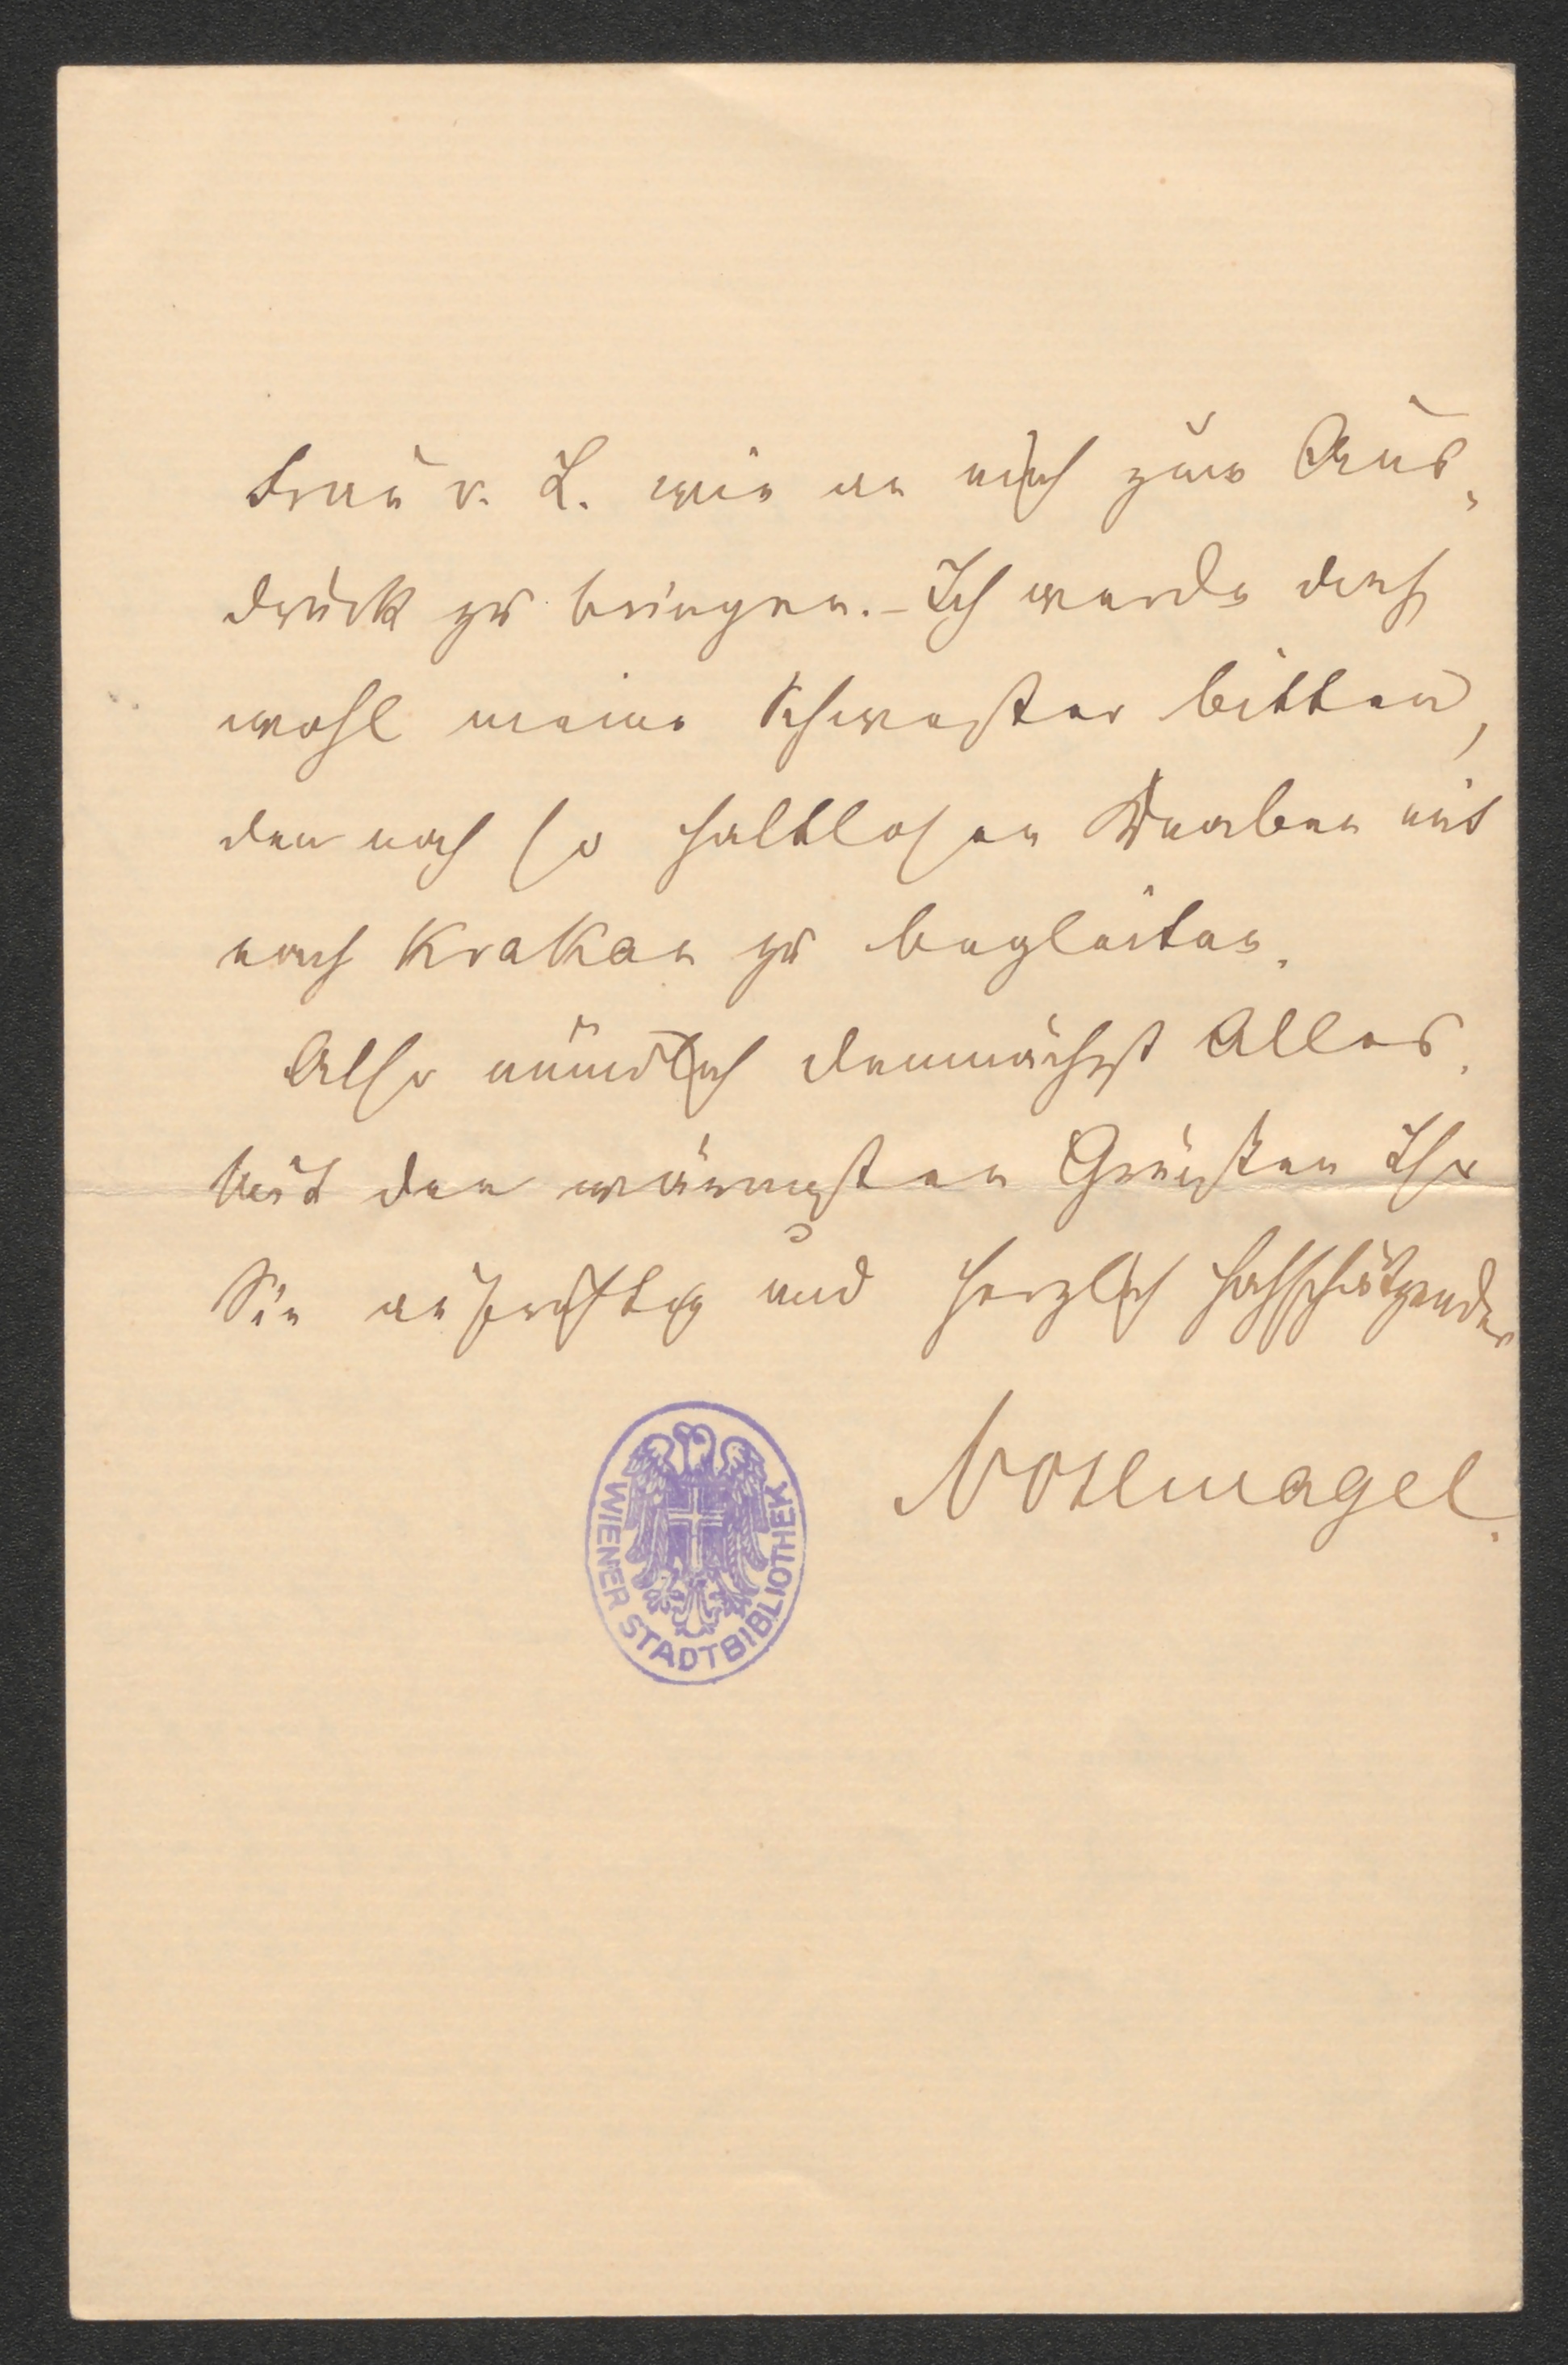 Frau v. L. wie an mich zum Aus-
druck zu bringen. – Ich werde doch
wohl meine Schwester bitten,
den noch so haltlosen Knaben mit
nach Krakau zu begleiten.
Also mündlich demnächst Alles.
Mit den wärmsten Grüßen Ihr
Sie aufrichtig und herzlich hochschätzender
Nothnagel.
WIENER STADTBIBLIOTHEK